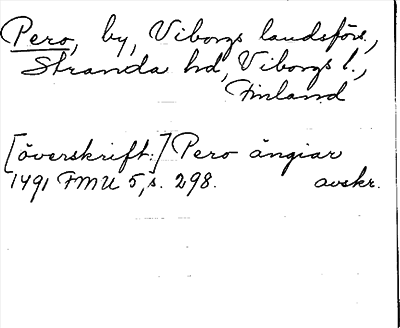 Pero, by, Viborgs landsförs.,
Stranda hd, Viborgs l.,
Finland
[överskrift:] Pero ängiar
1491 FMU 5, s. 298. avskr.